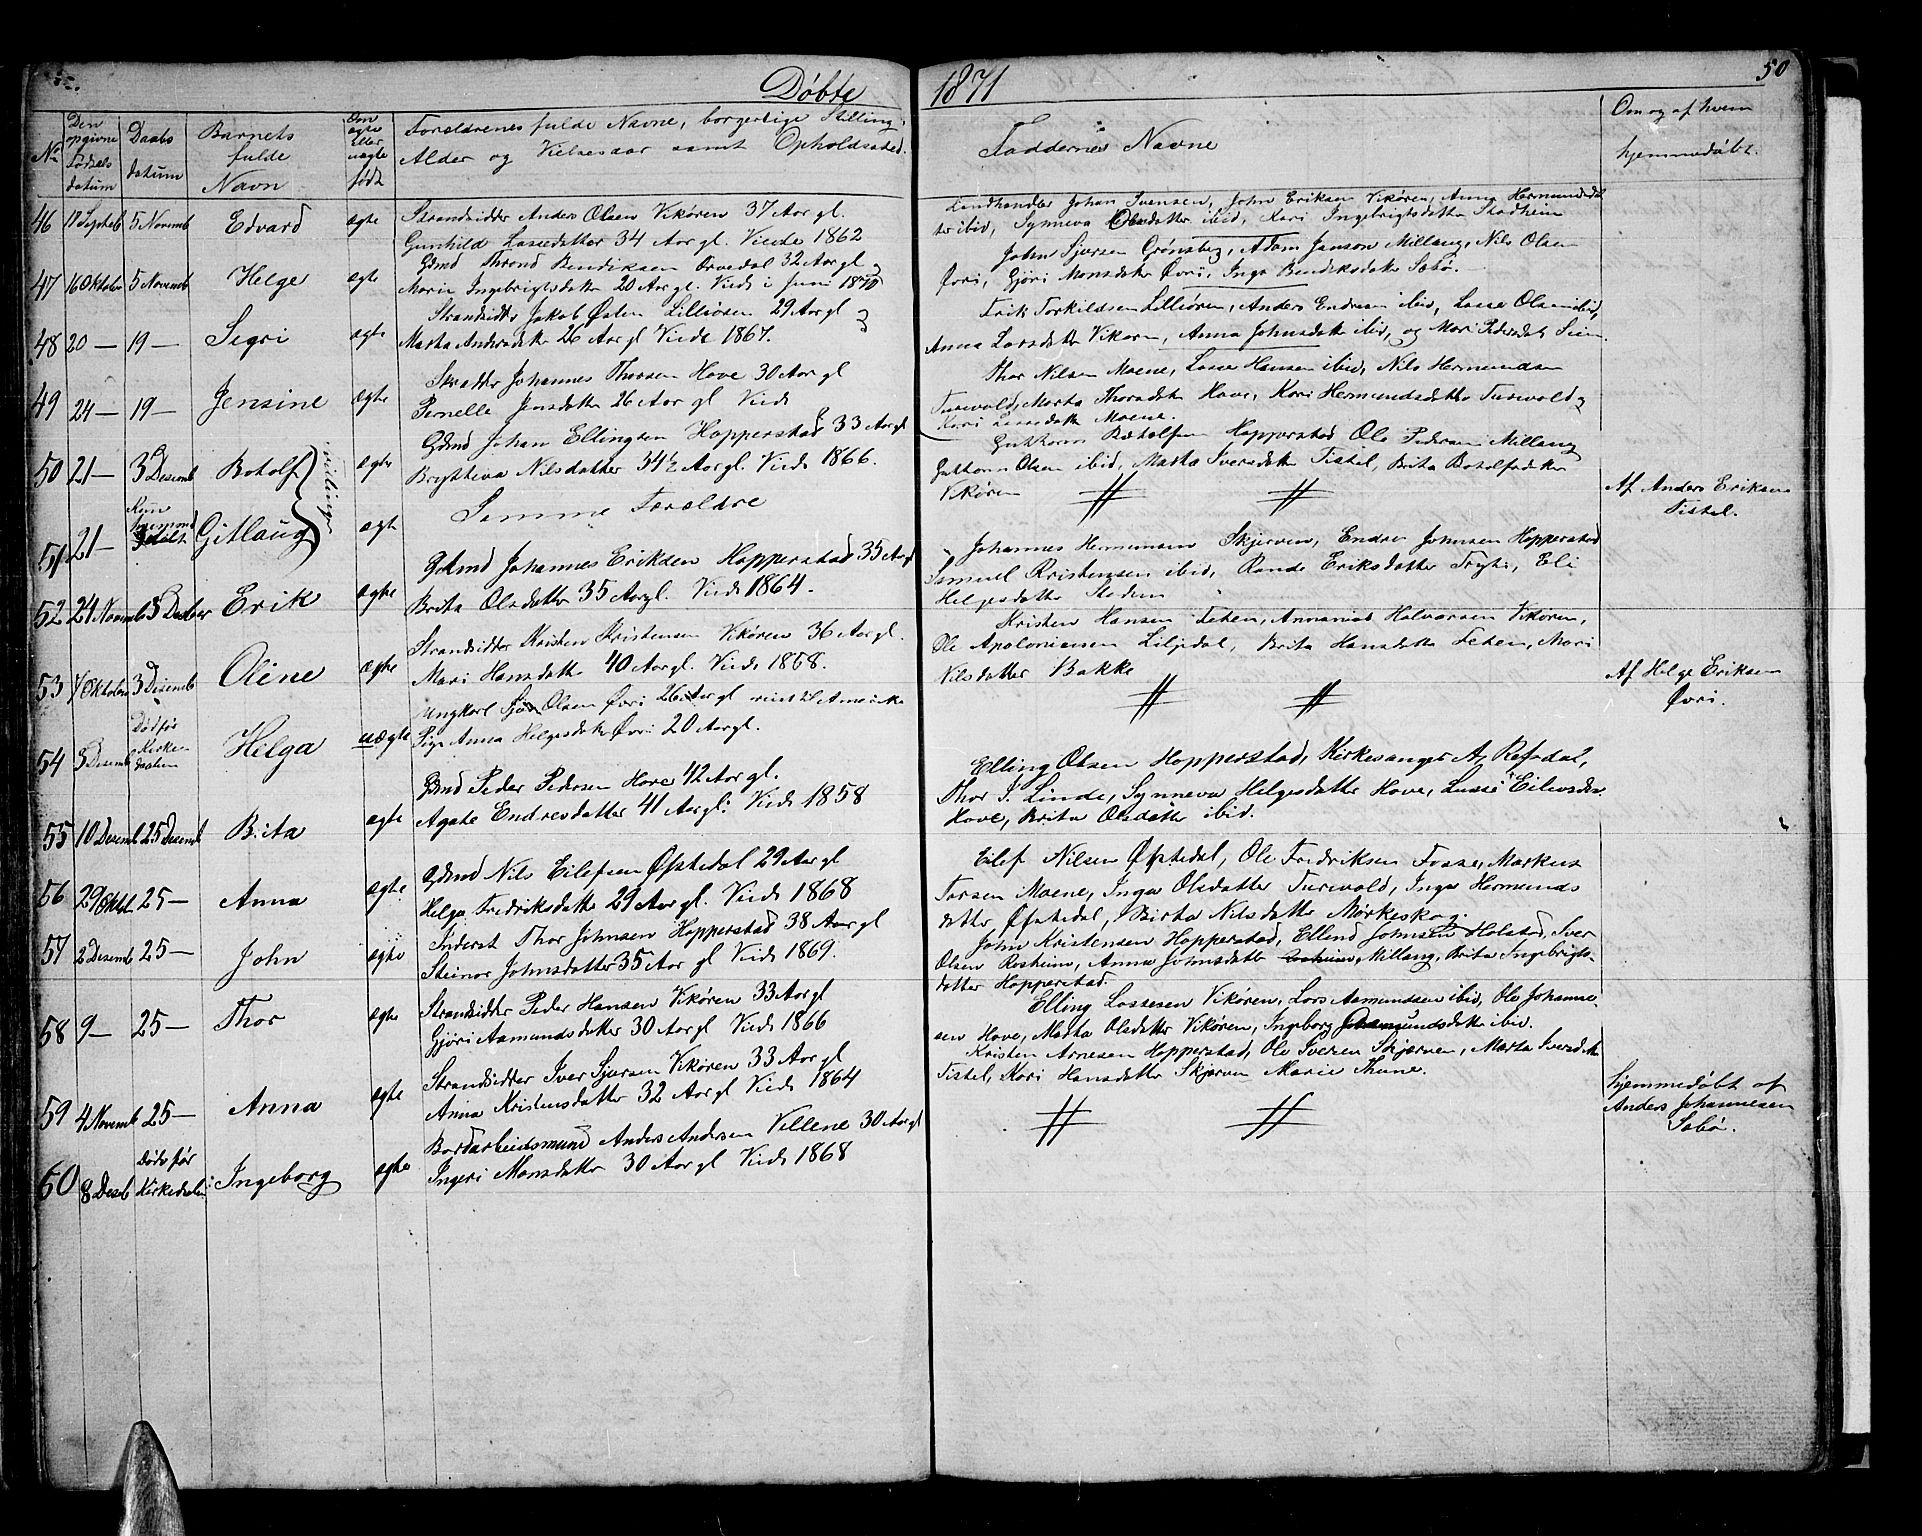 Döbte
1871
50
No
Den opgivne Fødsels datum
Daabs datum
Barnets fulde Navn
Om ægte eller uægte født
Forældrenes fulde Navne, borgerlige Stilling,
Alder og Vielsesaar samt Opholdssted.
Faddernes Navne
Om og af hvem
hjemmedøbt.
46 17 Septeb 5 Novemb Edvard ægte
Strandsidder Anders Olsen Vikören 37 Aar gl.
Gunhild Lassedatter 34 Aar gl. Viede 1862
Landhandler Johan Svensen, John Eriksen Vikören, Anna Hermundsdat
ter ibid, Synneva Olsdatter ibid, Kari Ingebrigtsdatter Stadheim
47 16 Oktober 5 Novemb Helge ægte
Gdmd Thrond Bendiksen Orvedal 32 Aar gl
Marie Ingebrigtsdatter 20 Aar gl. Viede i Juni 1870
John Sjursen Grönsberg, Adam Janson Millang, Nils Olsen
Övri, Gjöri Monsdatter Övri, Inga Bendiksdatter Sæbö.
48 20 — 19 — Sigri ægte
Strandsidder Jakob Östen Lilliören 29 Aar gl
Martha Andersdatter 26 Aar gl Viede 1867.
Erik Torkildsen Lilliören, Anders Endresen ibid, Lasse Olsen ibid,
Anna Larsdatter Vikören, Anna Johnsdatter ibid, og Mari Pedersdat Seim.
49 24 — 19 — Jensine ægte
Skrædder Johannes Thorsen Hove 30 Aar gl
Pernelle Jensdatter 26 Aar gl Viede
Thor Nilsen Moene, Lasse Hansen ibid, Nils Hermundsen
Turvold, Marta Thorsdatter Hove, Kari Hermundsdatter Turvold og
Kari Larsdatter Moene.
50 21 — 3 Desemb Botolf ægte
tvillinger
Gdmd Johan Ellingsen Hopperstad 33 Aar gl
Bryttheva Nilsdatter 34½ Aar gl. Viede 1866.
Guttorm Botolfsen Hopperstad Ole Pedersen Millang
Guttorm Olsen ibid, Marta Iversdatter Tistel, Brita Botolfsdatter
Vikören
51 21 — Kun hjemmedøbt. Gitlaug ægte
Samme Forældre
Af Anders Eriksen
Tistel.
52 24 Novemb 3 Desember Erik ægte
Gdmd Johannes Eriksen Hopperstad 35 Aar gl
Brita Olsdatter 35 Aar gl. Viede 1864.
Johannes Hermensen Skjerven, Endre Johnsen Hopperstad
Samuel Kristensen ibid, Rande Eriksdatter Tryti, Eli
Helgesdatter Stadem
53 4 Oktober 3 Desemb Oline ægte
Strandsidder Kristen Kristensen Vikören 36 Aar gl.
Mari Hansdatter 40 Aar gl. Viede 1868.
Kristen Hansen Feten, Annanias Halvorsen Vikören,
Ole Apolonisen Liljedal, Brita Hansdatter Feten, Mari
Nilsdatter Bakke
54 3 Desemb Død før Kirkedaaben Helga uægte
Ungkarl Sjur Olsen Övri 26 Aar gl reist til Amerika
Pige Anna Helgesdatter Övri 20 Aar gl.
Af Helge Eriksen
Övri.
55 10 Desemb 25 Desemb Brita ægte
Gdmd Peder Pedersen Hove 42 Aar gl.
Agate Endresdatter 41 Aar gl. Viede 1858
Elling Olsen Hopperstad, Kirkesanger A. Refsdal,
Thor I. Linde, Synneva Helgesdatter Hove, Lussi Eilevsdr.
Hove, Brita Olsdatter ibid.
56 29 Oktbr. 25 — Anna ægte
Gdmd Nils Eilefsen Öfstedal 29 Aar gl
Helga Fredriksdatter 29 Aar gl. Viede 1868
Eilef Nilsen Öfstedal, Ole Fredriksen Fosse, Markus
Torsen Moene, Inga Olsdatter Turvold, Inga Hermunds
datter Öfstedal, Birta Nilsdatter Mörkeskog.
57 2 Desemb 25 — John ægte
Inderst Thor Johnsen Hopperstad 38 Aar gl
Steinor Johnsdatter 35 Aar gl Viede 1869.
John Kristensen Hopperstad, Ellend Johnsen Holstad, Iver
Olsen Rosheim, Anna Johnsdatter Millang, Brita Ingebrigts-
datter Hopperstad.
58 9 — 25 — Thor ægte
Strandsidder Peder Hansen Vikören 33 Aar gl
Gjöri Aamundsdatter 30 Aar gl Viede 1866
Elling Lassesen Vikören, Lars Aamundsen ibid, Ole Johanne
sen Hove, Marta Olsdatter Vikören, Ingeborg Aamundsdatter ibid.
59 4 Novemb 25 — Anna ægte
Strandsidder Iver Sjursen Vikören 33 Aar gl
Anna Kristensdatter 32 Aar gl Viede 1864
Kristen Arnesen Hopperstad, Ole Iversen Skjerven, Marta Iversdatter
Tistel, Kari Hansdatter Skjerven Marie Thune.
60 8 Desb Døde før Kirkedaaben Ingeborg ægte
Bordarbeidsmand Anders Andersen Villene 30 Aar gl
Ingeri Monsdatter 30 Aar gl Viede 1868
hjemmedøbt af
Anders Johannesen
Sæbö.